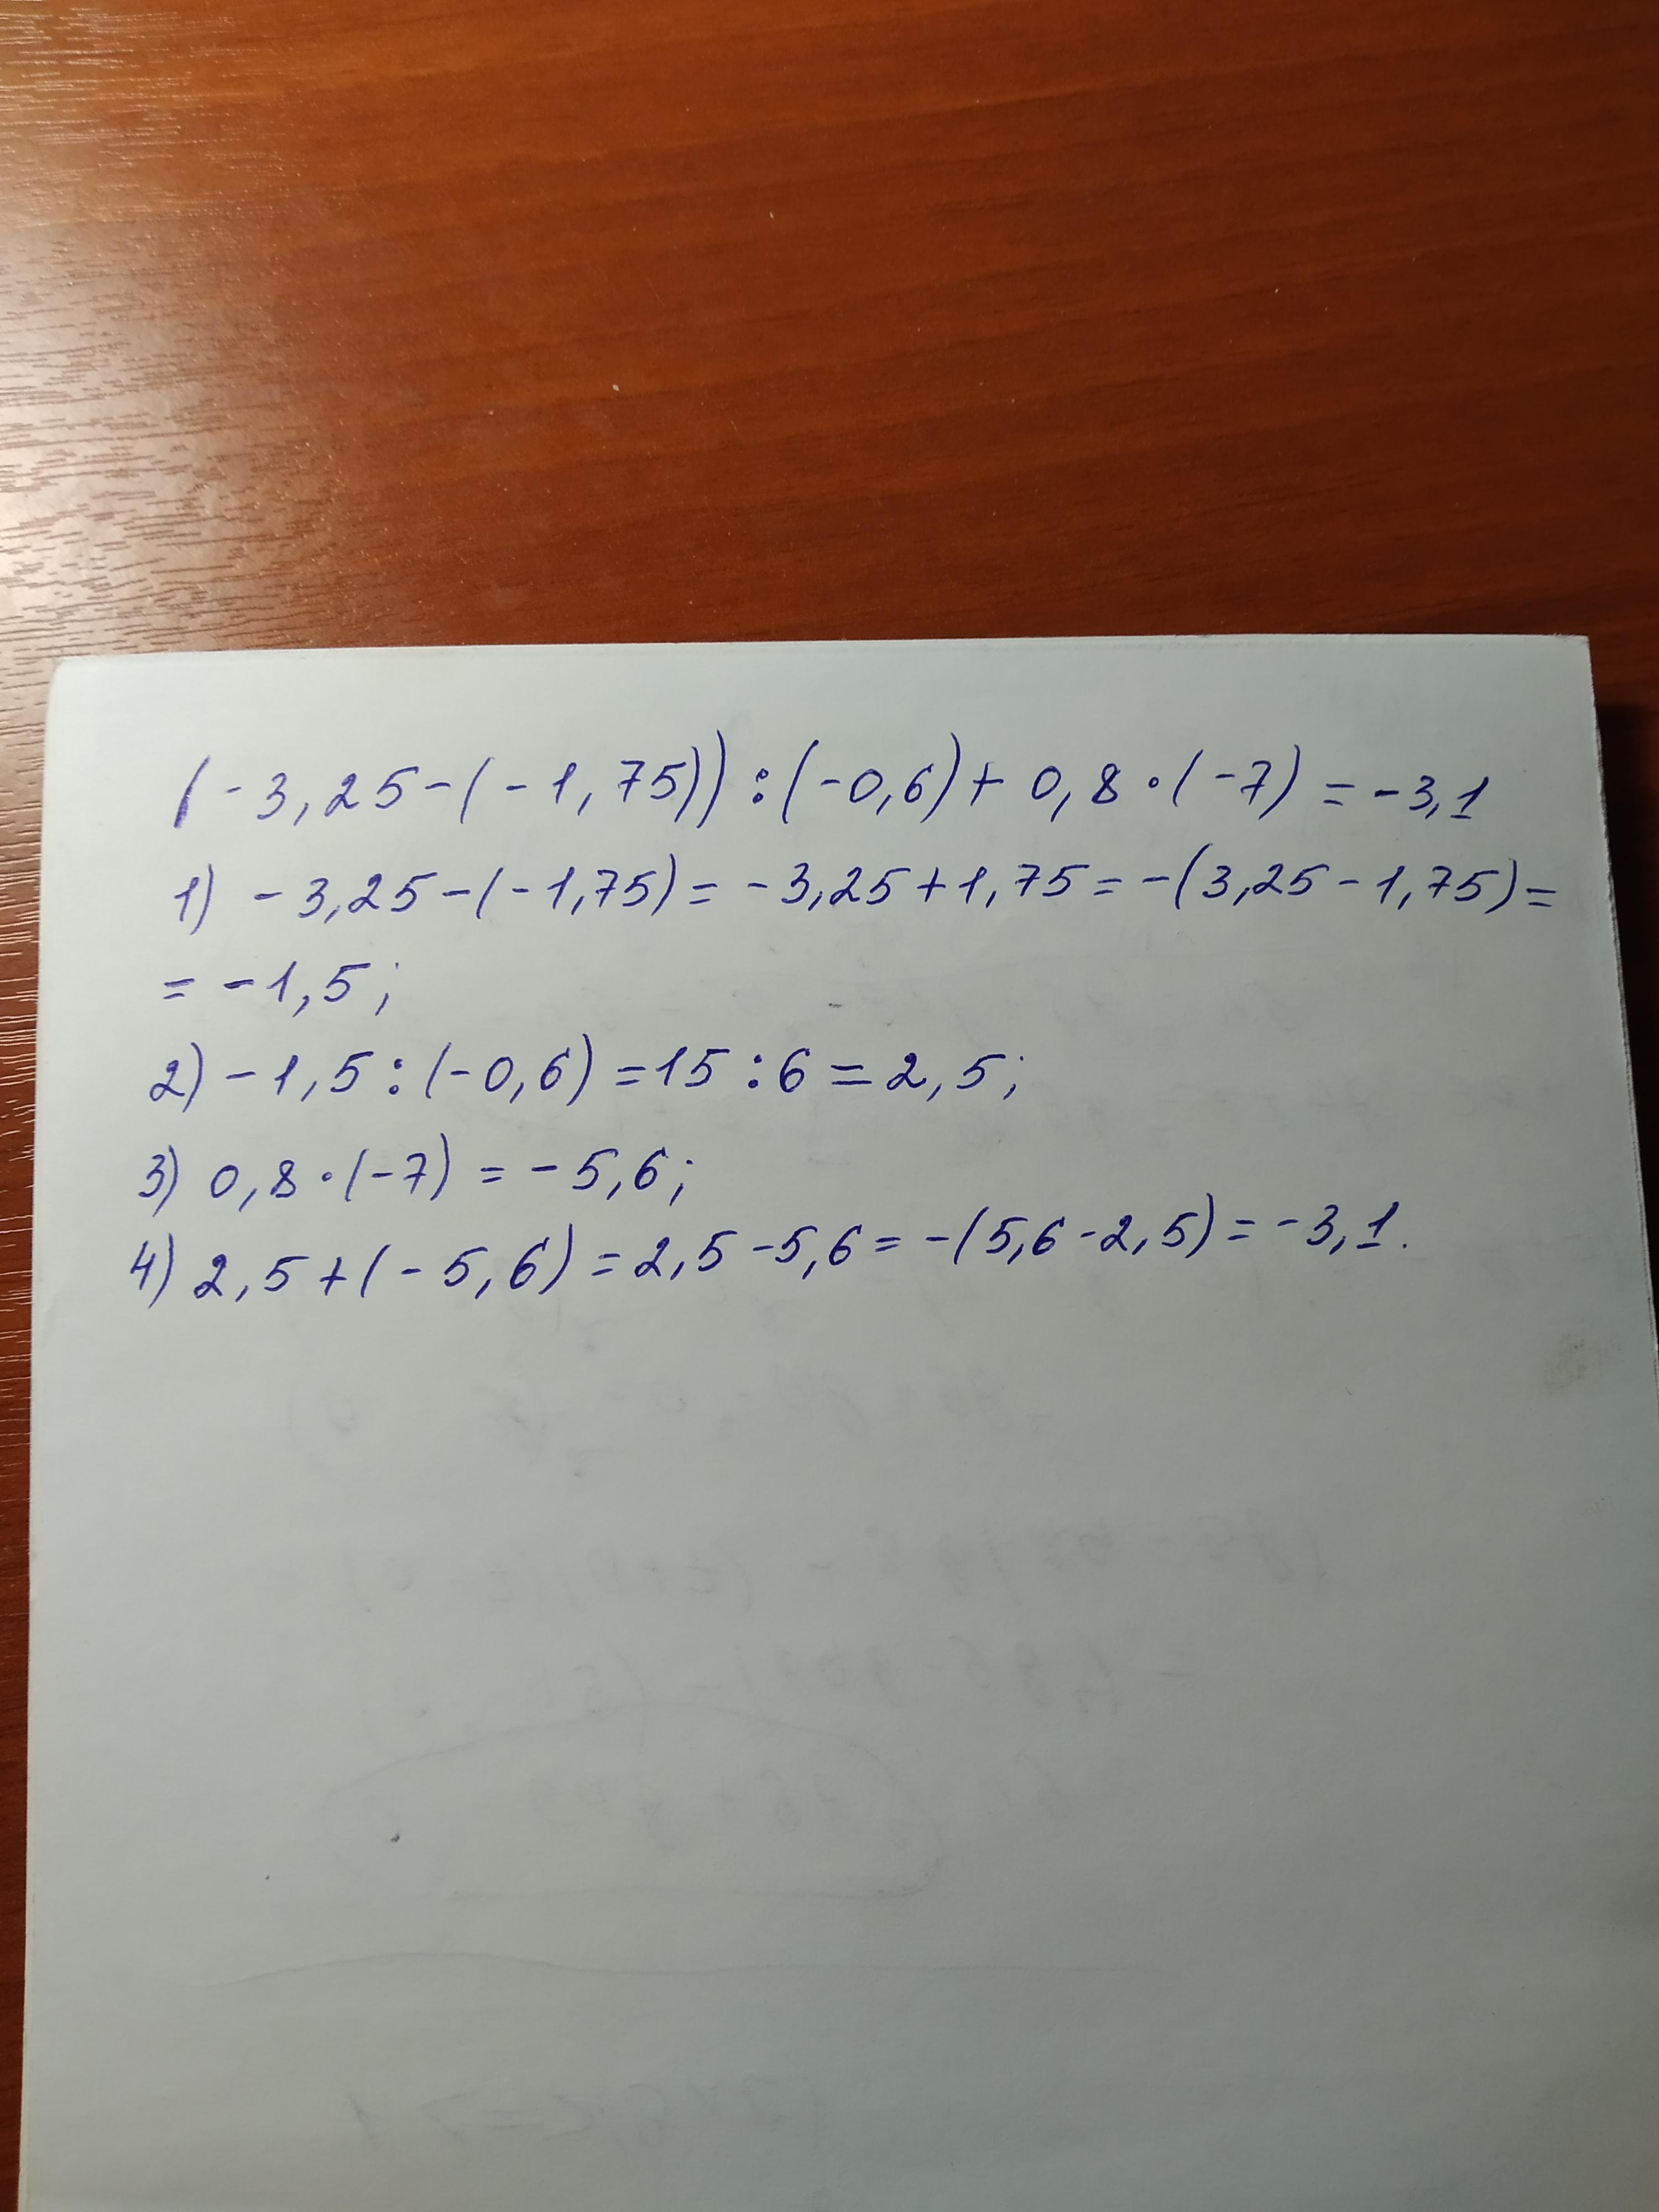 (-3,25-(-1,75)):(-0,6)+0,8·(-7)=-3,1
1) -3,25-(-1,75)=-3,25+1,75=-(3,25-1,75)=
=-1,5;
2) -1,5:(-0,6)=15:6=2,5;
3) 0,8·(-7)=-5,6;
4) 2,5+(-5,6)=2,5-5,6=-(5,6-2,5)=-3,1.